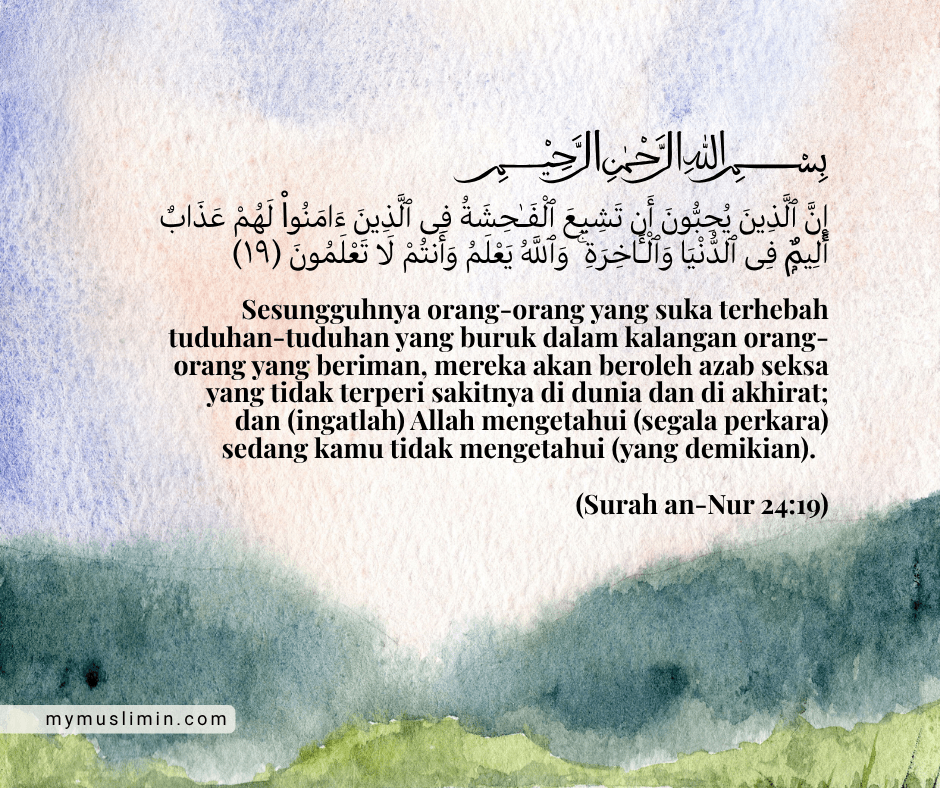 بِسْمِ اللهِ الرَّحْمٰنِ الرَّحِيْمِ
إِنَّ ٱلَّذِينَ يُحِبُّونَ أَن تَشِيعَ ٱلْفَـٰحِشَةُ فِى ٱلَّذِينَ ءَامَنُوا۟ لَهُمْ عَذَابٌ
أَلِيمٌۭ فِى ٱلدُّنْيَا وَٱلْـَٔاخِرَةِ ۚ وَٱللَّهُ يَعْلَمُ وَأَنتُمْ لَا تَعْلَمُونَ (١٩)
Sesungguhnya orang-orang yang suka terhebah
tuduhan-tuduhan yang buruk dalam kalangan orang-
orang yang beriman, mereka akan beroleh azab seksa
yang tidak terperi sakitnya di dunia dan di akhirat;
dan (ingatlah) Allah mengetahui (segala perkara)
sedang kamu tidak mengetahui (yang demikian).
(Surah an-Nur 24:19)
mymuslimin.com